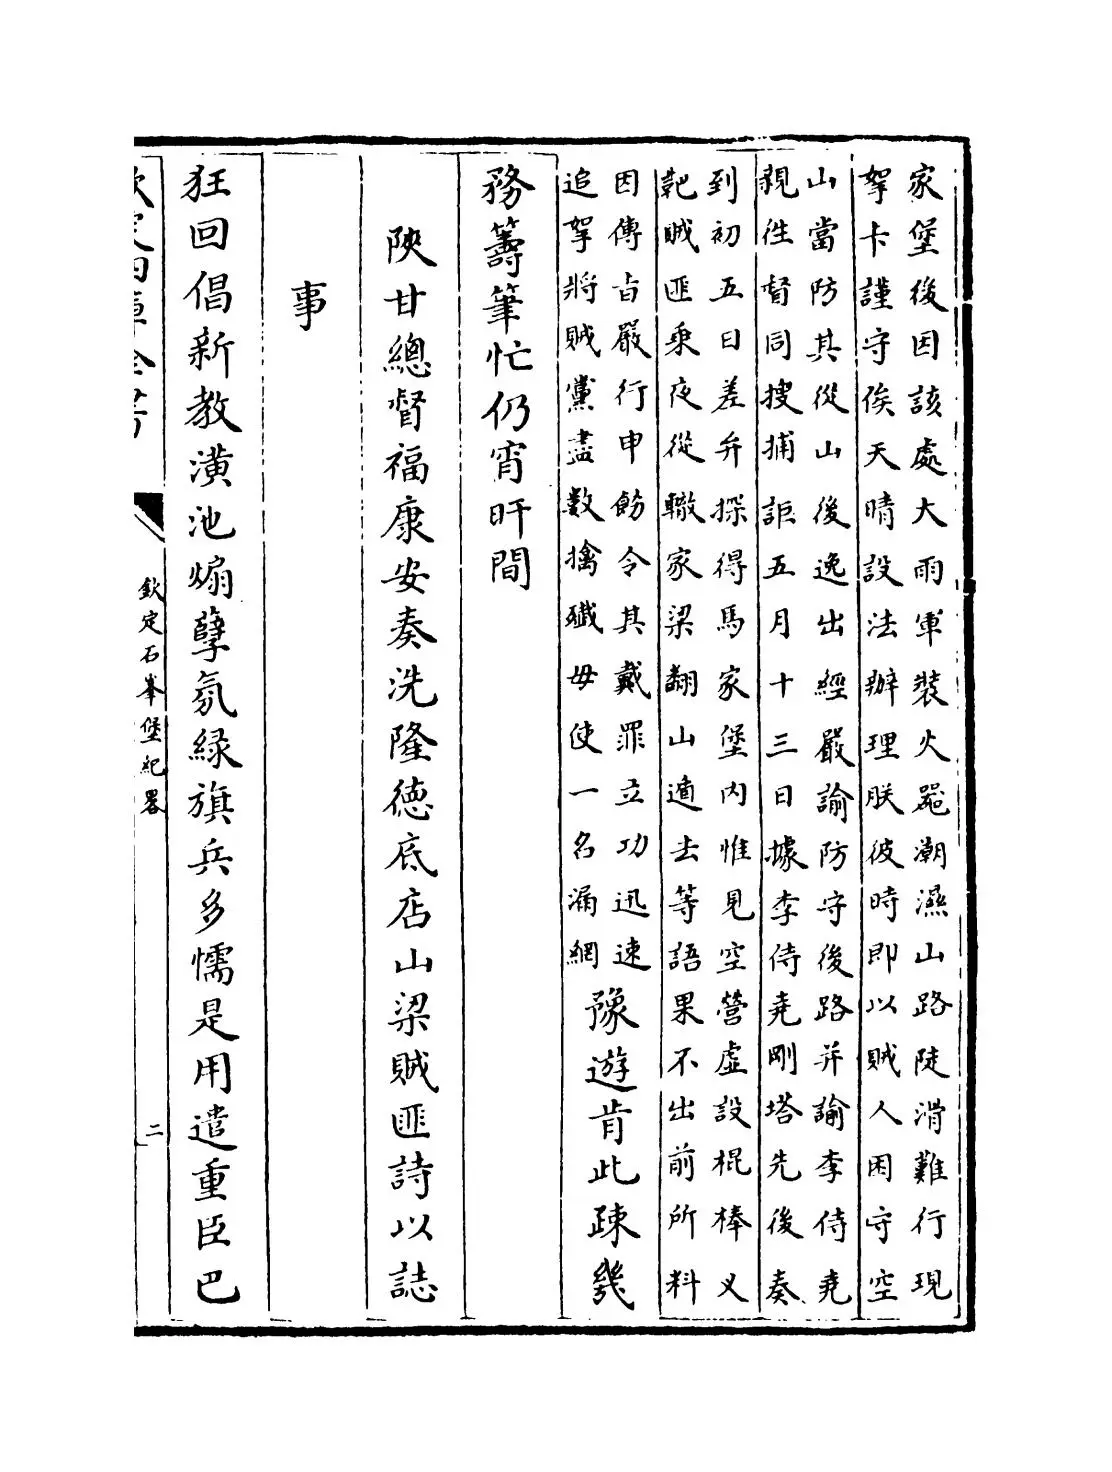 家堡後因該處大雨軍裝火噐潮濕山路陡滑難行現
拏卡謹守俟天晴設法辦理朕彼時即以賊人困守空
山當防其從山後逸出經嚴諭防守後路并諭李侍堯
親徃督同搜捕詎五月十三日據李侍堯剛塔先後奏
到初五日差弁探得馬家堡内惟見空營虚設棍棒义
靶賊匪乗夜從轍家梁翻山遁去等語果不出前所料
因傳㫖嚴行申飭令其戴罪立功迅速
追拏將賊黨盡數擒殱毋使一名漏網
豫遊肯此疎幾
務籌筆忙仍宵旰間
陜甘總督福康安奏洗隆徳底店山梁賊匪詩以誌
事
狂回倡新教潢池煽孽氛緑旗兵多懦是用遣重臣巴
欽定四庫全書
欽定石峯堡紀畧
二